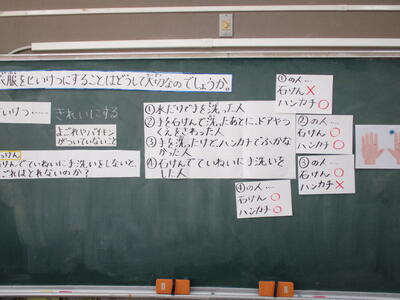 衣服をせいけつにすることはどうして大切なのでしょうか。
いけつ……
きれいにする
よごれやバイキン
がついていないこと
んでていねいに手洗いをしないと、
ごれはとれないのか？
①水だけで手を洗った人
②手を石けんで洗ったあとに、ドアやつ
くえをさわった人
③手を洗ったけど、ハンカチでふかな
かった人
④石けんでていねいに手洗いを
した人
①の人……
石けん×
ハンカチ○
②の人……
石けん○
ハンカチ○
③の人……
石けん○
ハンカチ×
④の人……
石けん○
ハンカチ○